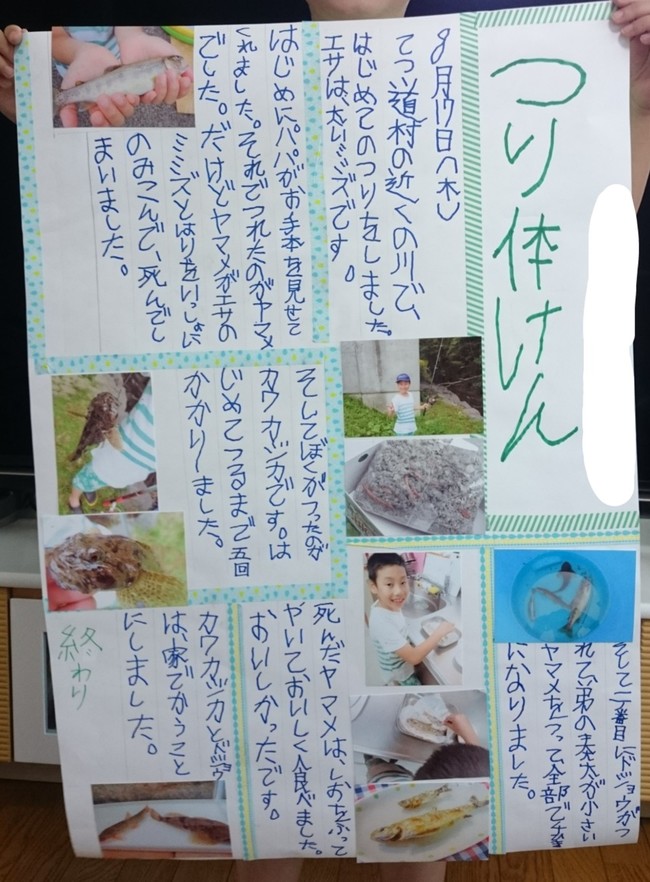 つり体けん
8月17日(木)
てつ道村の近くの川で、
はじめてのつりをしました。
エサは、太いミミズです。
はじめにパパがお手本を見せて
くれました。それでつれたのがヤマメ
でした。だけどヤマメがエサの
ミミズとはりをいっしょに
のみこんで、死んでし
まいました。
そしてぼくがつったのが
カワカジカです。は
じめてつるまで五回
かかりました。
そして二番目にドジョウがつ
れて、弟の
が小さい
ヤマメをつって、全部で4匹
になりました。
死んだヤマメは、しおをふって
やいておいしく食べました。
おいしかったです。
カワカジカとドジョウ
は、家でかうこと
にしました。
終わり